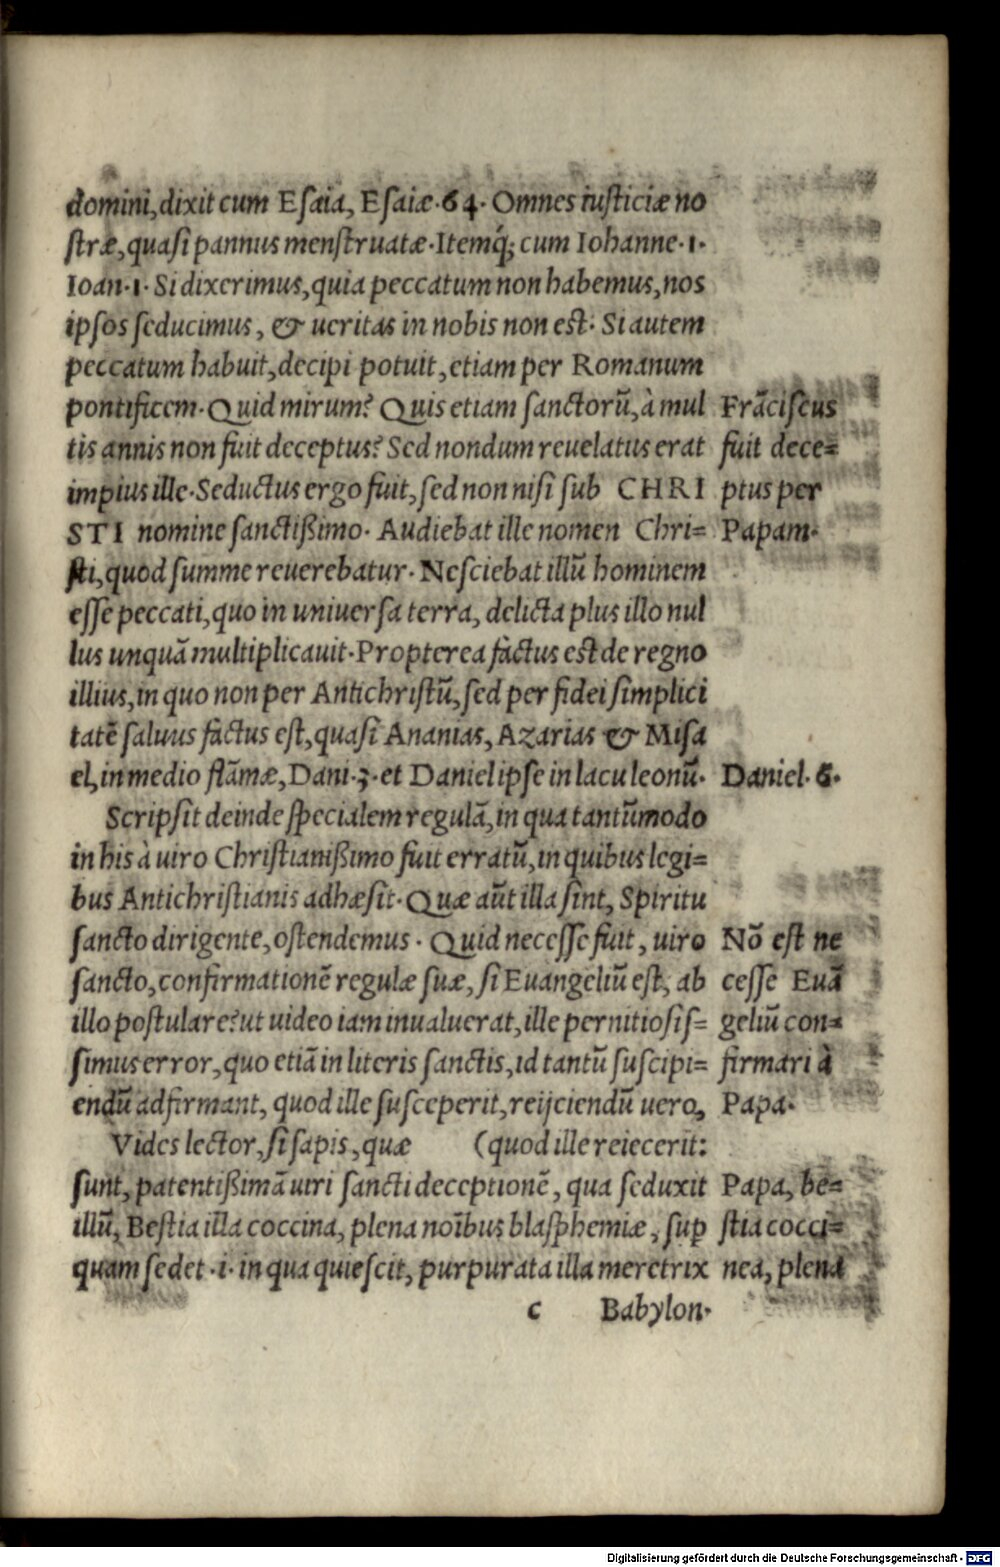 domini, dixit cum Eſaia, Eſaiæ·64· Omnes iuſticiæ no
ſtræ, quaſi pannus menſtruatæ·Itemq́; cum Iohanne·1·
Ioan·1· Si dixerimus, quia peccatum non habemus, nos
ipſos ſeducimus, & ueritas in nobis non eſt· Si autem
peccatum habuit, decipi potuit, etiam per Romanum
pontificem· Quid mirum? Quis etiam ſanctorũ, à mul
tis annis non fuit deceptus? Sed nondum reuelatus erat
impius ille·Seductus ergo fuit, ſed non niſi ſub CHRI
STI nomine ſanctißimo· Audiebat ille nomen Chri=
ſti, quod ſumme reuerebatur· Neſciebat illũ hominem
eſſe peccati, quo in uniuerſa terra, delicta plus illo nul
lus unquã multiplicauit·Propterea factus eſt de regno
illius, in quo non per Antichriſtũ, ſed per fidei ſimplici
tatẽ ſaluus factus eſt, quaſi Ananias, Azarias & Miſa
el, in medio flãmæ, Dani·3·et Daniel ipſe in lacu leonũ·
Scripſit deinde ſpecialem regulã, in qua tantũmodo
in his à uiro Chriſtianißimo fuit erratũ, in quibus legi=
bus Antichriſtianis adhæſit· Quæ aũt illa ſint, Spiritu
ſancto dirigente, oſtendemus · Quid neceſſe fuit, uiro
ſancto, confirmationẽ regulæ ſuæ, ſi Euangeliũ eſt, ab
illo poſtulare? ut uideo iam inualuerat, ille pernitioſiſ=
ſimus error, quo etiã in literis ſanctis, id tantũ ſuſcipi=
endũ adfirmant, quod ille ſuſceperit, reijciendũ uero,
Vides lector, ſi ſapis, quæ (quod ille reiecerit:
ſunt, patentißimã uiri ſancti deceptionẽ, qua ſeduxit
illũ, Beſtia illa coccina, plena noĩbus blaſphemiæ, ſuꝑ
quam ſedet ·i· in qua quieſcit, purpurata illa meretrix
c Babylon·
Frãciſcus
fuit dece=
ptus per
Papam·
Daniel·6·
Nõ eſt ne
ceſſe Euã
geliũ con=
firmari à
Papa·
Papa, be=
ſtia cocci=
nea, plena
Digitalisierung gefördert durch die Deutsche Forschungsgemeinschaft - DFG